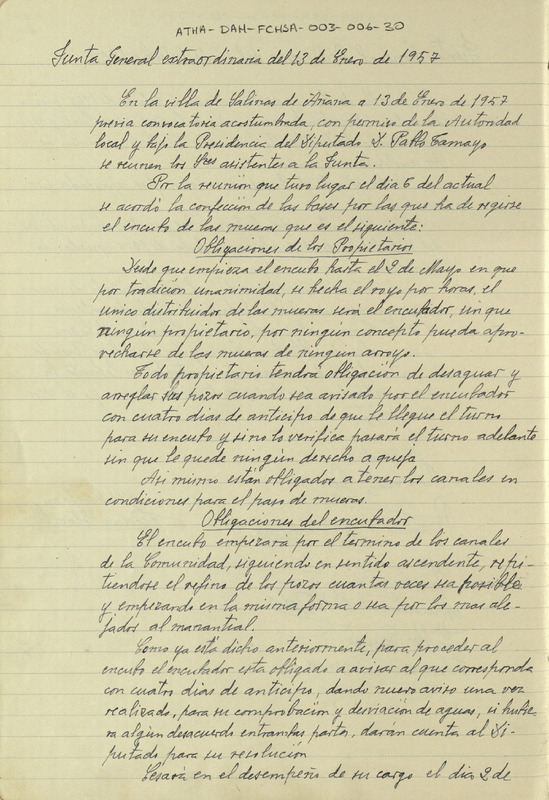 ATHA-DAH-FCHSA-003-006-30
Junta General extraordinaria del 13 de Enero de 1957
En la villa de Salinas de Añana a 13 de Enero de 1957
previa convocatoria acostumbrada, con permiso de la Autoridad
local y bajo la Presidencia del Diputado D. Pablo Tamayo
se reunen los Sres asistentes a la Junta.
Por la reunión que tuvo lugar el dia 6 del actual
se acordó la confección de las bases por las que ha de regirse
el encubo de las mueras que es el siguiente:
Obligaciones de los Propietarios
Desde que empieza el encubo hasta el 2 de Mayo en que
por tradición unanimidad, se hecha el royo por horas, el
unico distribuidor de las mueras será el encubador, sin que
ningún propietario, por ningún concepto pueda apro-
vecharse de las mueras de ningun arroyo.
Todo propietario tendrá obligación de desaguar y
arreglar sus pozos cuando sea avisado por el encubador
con cuatro dias de anticipo de que le llegue el turno
para su encubo y si no lo verifica pasará el turno adelante
sin que le quede ningún derecho a queja
Asi mismo están obligados a tener los canales en
condiciones para el paso de mueras.
Obligaciones del encubador
El encubo empezará por el termino de los canales
de la Comunidad, siguiendo en sentido ascendente, repi-
tiendose el refino de los pozos cuantas veces sea posible
y empezando en la misma forma o sea por los mas ale-
jados al manantial.
Como ya está dicho anteriormente, para proceder al
encubo el encubador esta obligado a avisar al que corresponda
con cuatro dias de anticipo, dando nuevo aviso una vez
realizado, para su comprobación y desviación de aguas, si hubie-
ra algun desacuerdo entrambas partes, daran cuenta al Di-
putado para su resolución
Cesará en el desempeño de su cargo el dia 2 de